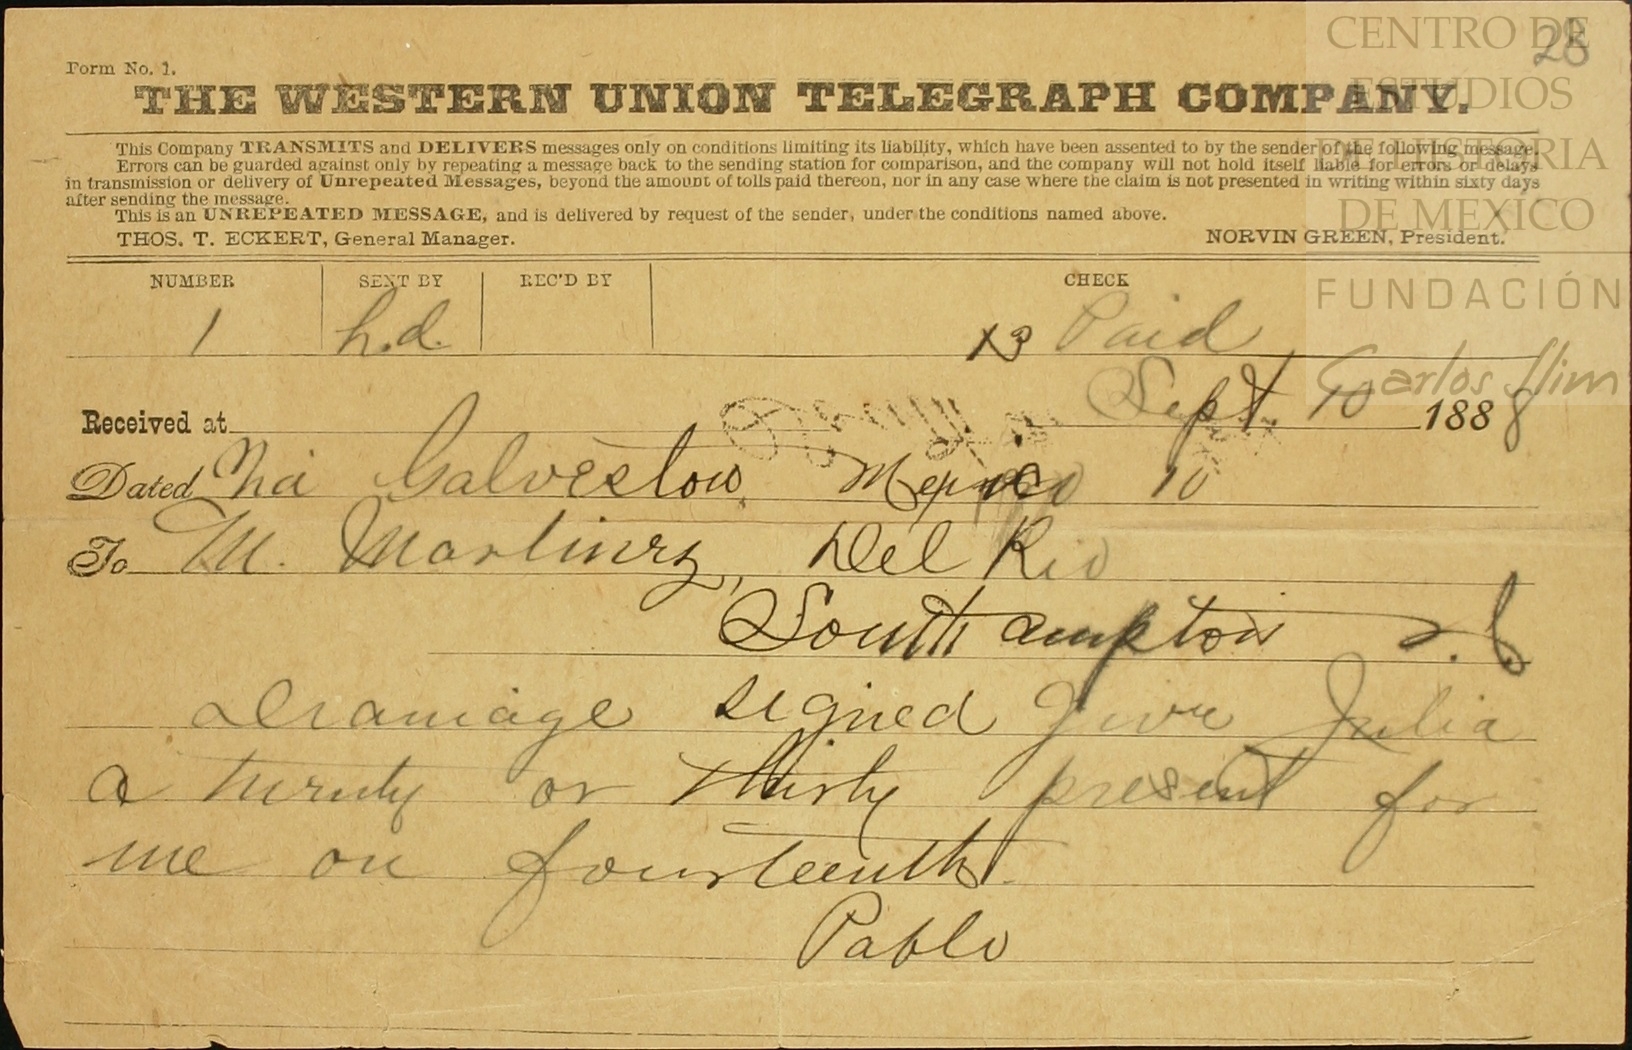 28
CENTRO DE
ESTUDIOS
DE HISTORIA
DE MEXICO
FUNDACIÓN
Carlos Slim
Form No. 1.
THE WESTERN UNION TELEGRAPH COMPANY.
This Company TRANSMITS and DELIVERS messages only on conditions limiting its liability, which have been assented to by the sender of the following message.
Errors can be guarded against only by repeating a message back to the sending station for comparison, and the company will not hold itself liable for errors or delays
in transmission or delivery of Unrepeated Messages, beyond the amount of tolls paid thereon, nor in any case where the claim is not presented in writing within sixty days
after sending the message.
This is an UNREPEATED MESSAGE, and is delivered by request of the sender, under the conditions named above.
THOS. T. ECKERT, General Manager. NORVIN GREEN, President.
NUMBER SENT BY REC'D BY CHECK
1 h.d. 13 Paid
Received at Sept. 10 1888
Dated Via Galveston Mexico 10
To M. Martinez, Del Rio
Southampton
Drainage signed give Julia
a twenty or thirty present for
me on fourteenth.
Pablo